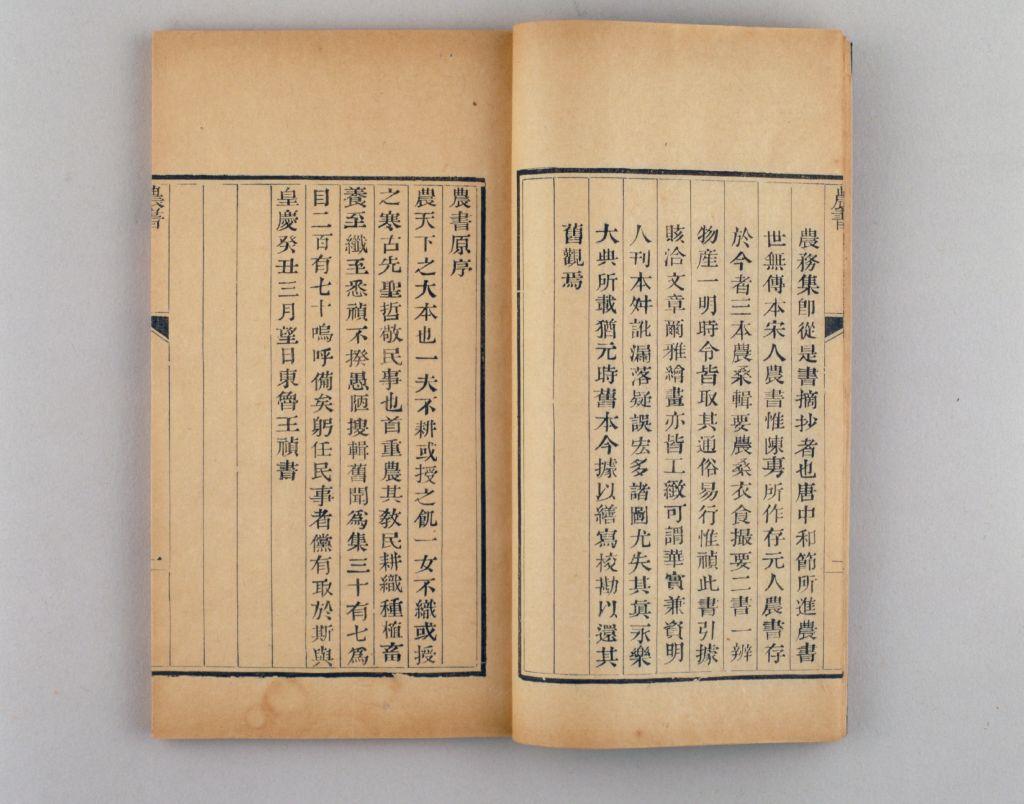 農書
二
農務集卽從是書摘抄者也唐中和節所進農書
世無傳本宋人農書惟陳旉所作存元人農書存
於今者三本農桑輯要農桑衣食撮要二書一辨
物產一明時令皆取其通俗易行惟禎此書引據
賅洽文章爾雅繪畫亦皆工緻可謂華實兼資明
人刊本舛訛漏落疑誤宏多諸圖尤失其眞永樂
大典所載猶元時舊本今據以繕寫校勘以還其
舊觀焉
農書原序
農天下之大本也一夫不耕或授之飢一女不織或授
之寒古先聖哲敬民事也首重農其敎民耕織種植畜
養至纖至悉禎不揆愚陋搜輯舊聞爲集三十有七爲
目二百有七十嗚呼備矣躬任民事者儻有取於斯與
皇慶癸丑三月望日東魯王禎書
農書
一